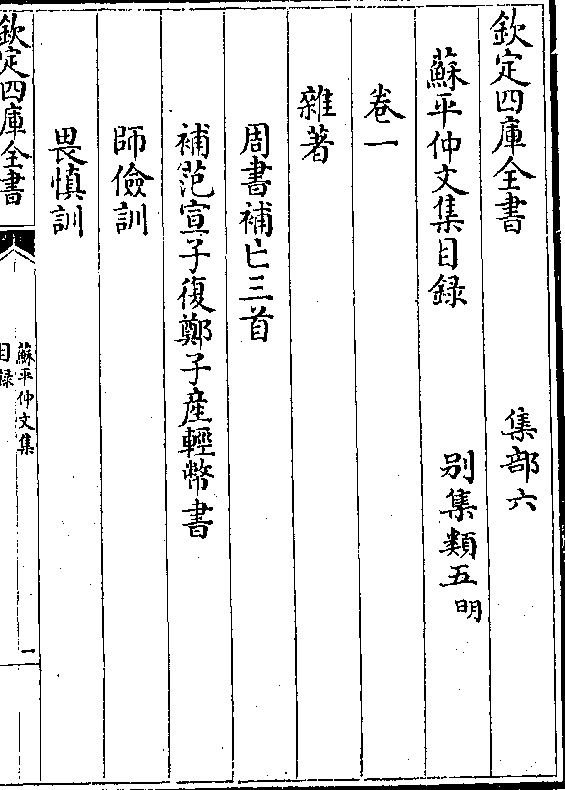 欽定四庫全書 集部六
蘇平仲文集目録 别集類五明
卷一
雜著
周書補亡三首
補范宣子復鄭子産輕幣書
師儉訓
畏慎訓
欽定四庫全書
蘇平仲文集
目録
一